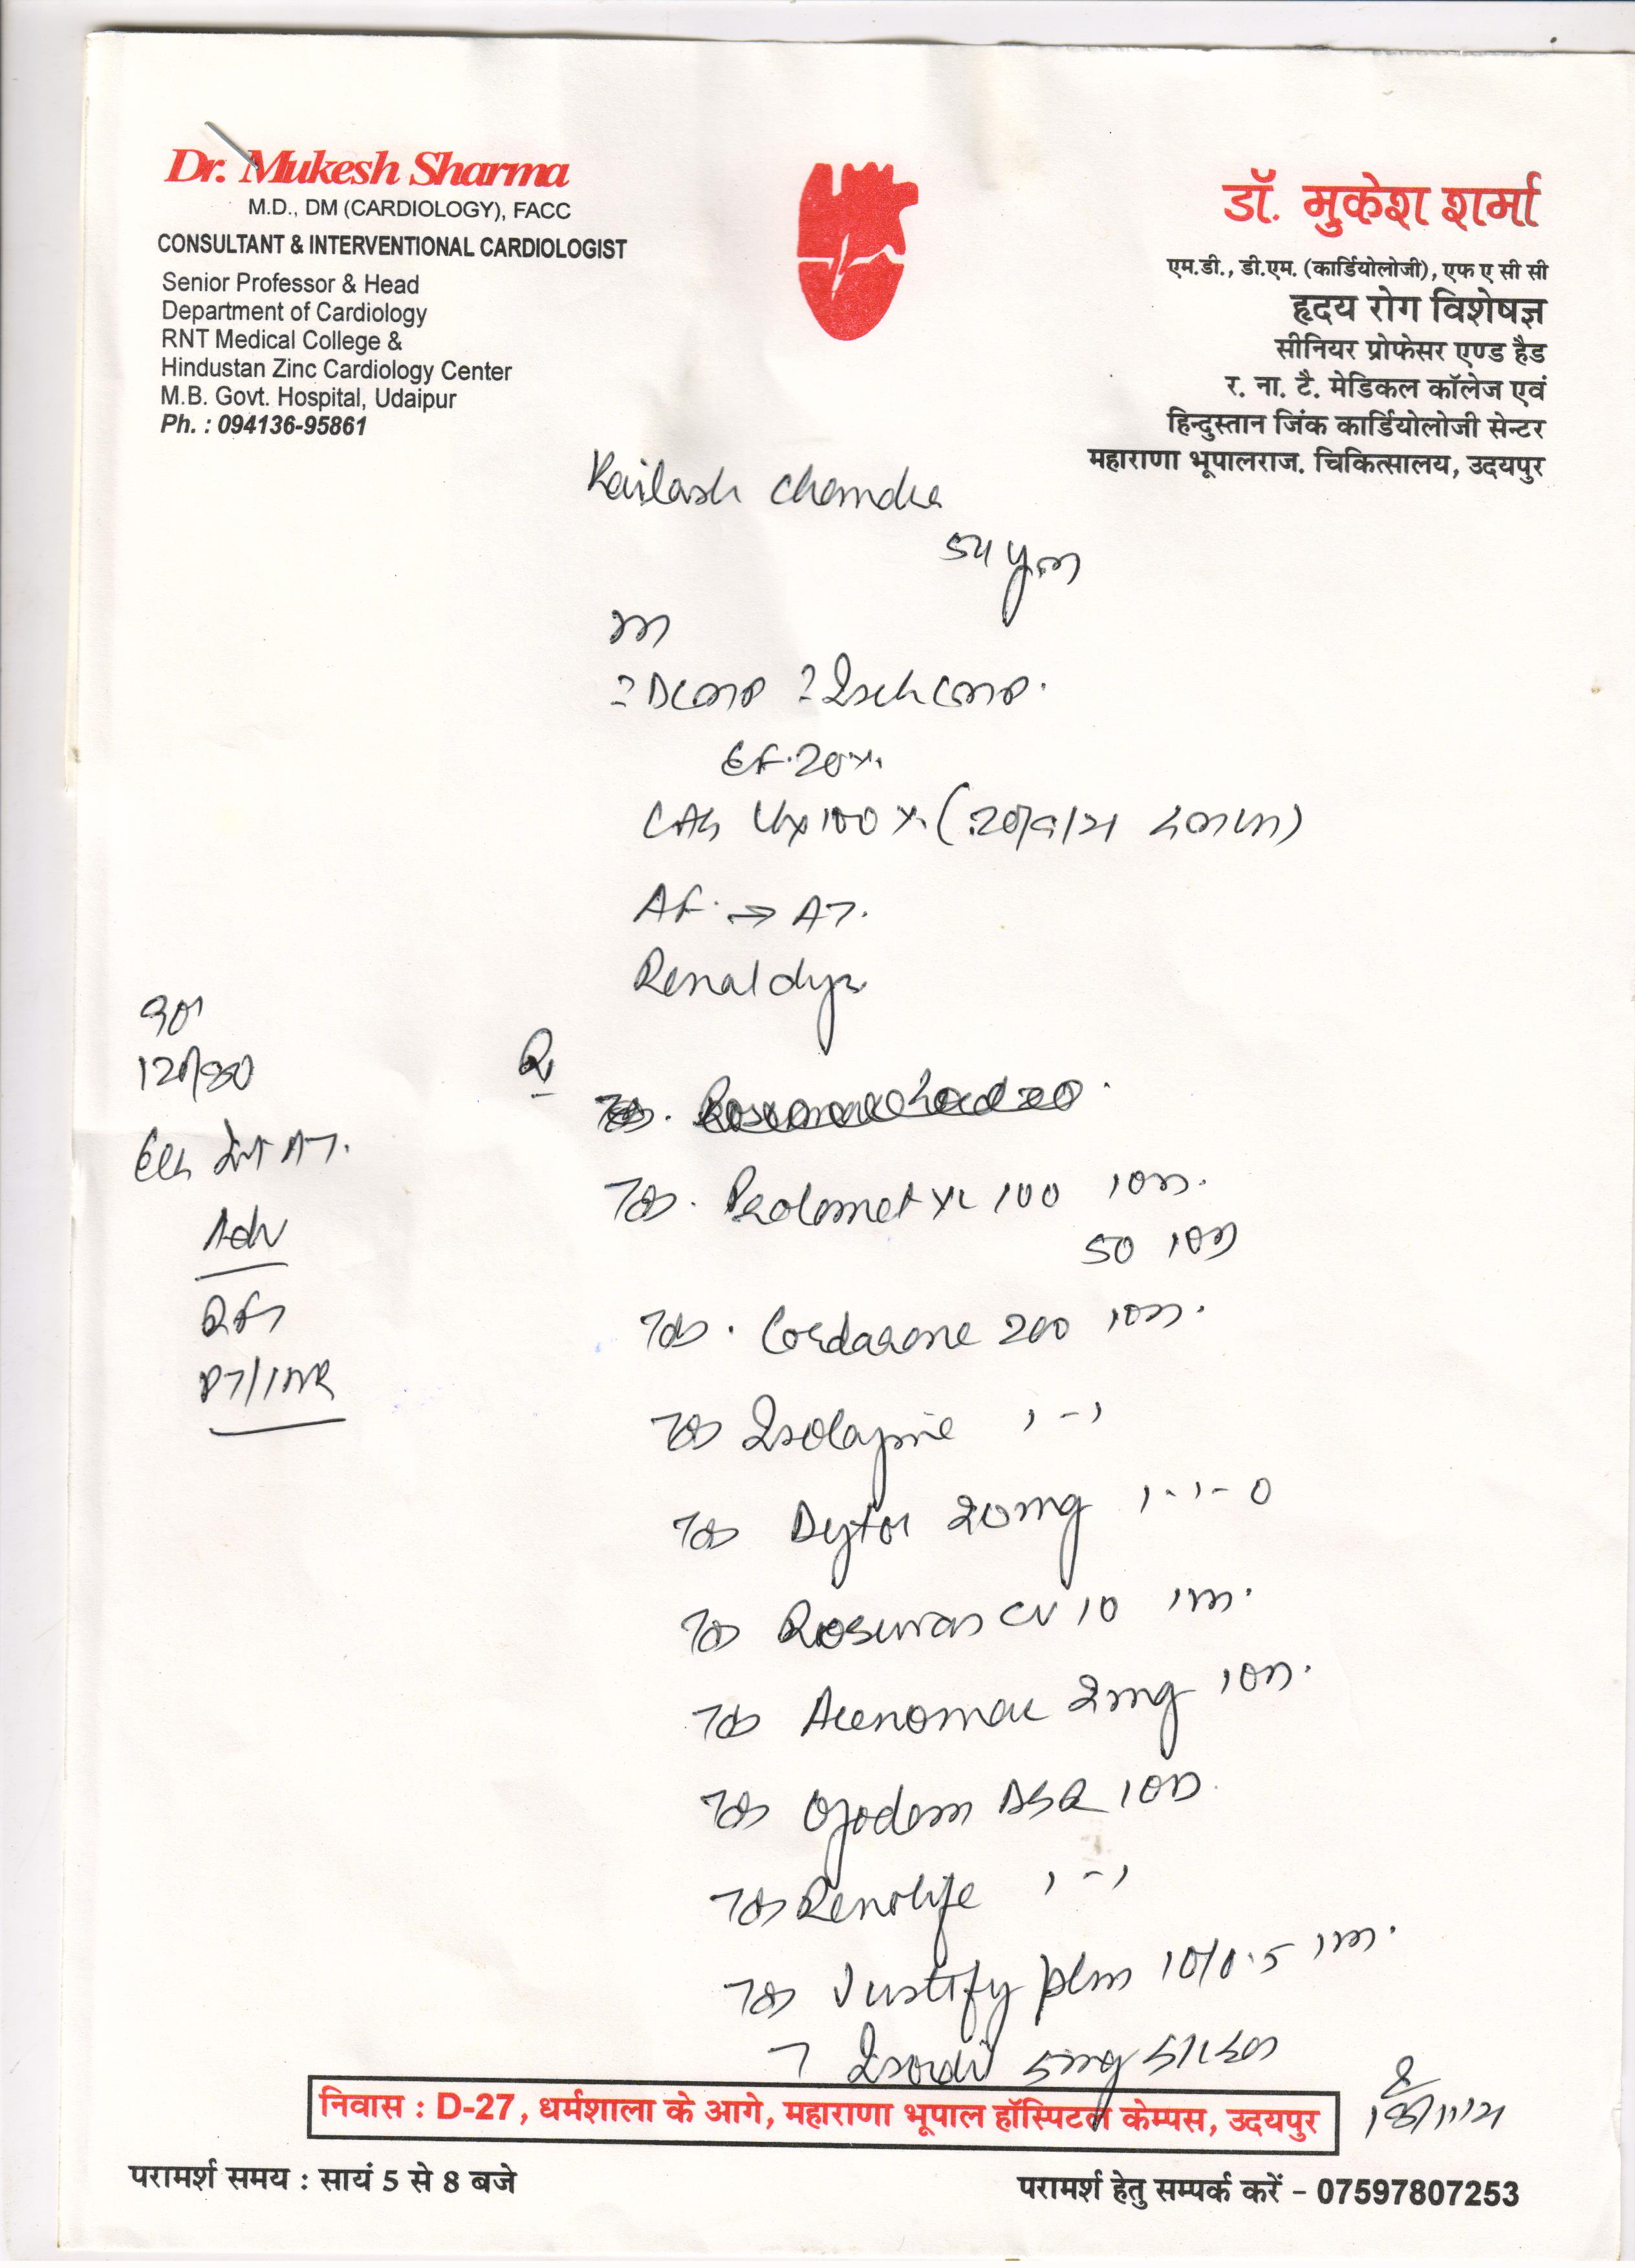 Dr. Mukesh Sharma
M.D., DM (CARDIOLOGY), FACC
CONSULTANT & INTERVENTIONAL CARDIOLOGIST
Senior Professor & Head
Department of Cardiology
RNT Medical College &
Hindustan Zinc Cardiology Center
M.B. Govt. Hospital, Udaipur
Ph. : 094136-95861
डॉ. मुकेश शर्मा
एम.डी., डी.एम. (कार्डियोलोजी), एफ ए सी सी
हृदय रोग विशेषज्ञ
सीनियर प्रोफेसर एण्ड हैड
र. ना. टै. मेडिकल कॉलेज एवं
हिन्दुस्तान जिंक कार्डियोलोजी सेन्टर
महाराणा भूपालराज. चिकित्सालय, उदयपुर
Kailash Chandra
54 ym
?DCMP ?Isch CMP.
EF.20%.
CAG 100%
AF. → AT.
Renal dys.
90
120/80
ECG AT.
Adv
RFT
PT/INR
R
Tab. Prolomet XL 100 1OD.
50 1OD
Tab. Cordarone 200 1OD.
Tab Isolazine 1-1
Tab Dytor 20mg 1-1-0
Tab Rosuvas CV 10
Tab Acenomac 2mg 1OD.
Tab Ojodom DSR 1OD.
Tab Renolife 1-1
Tab Justify plm 10/0.5
T Isordil 5mg
निवास : D-27, धर्मशाला के आगे, महाराणा भूपाल हॉस्पिटल केम्पस, उदयपुर
परामर्श समय : सायं 5 से 8 बजे
परामर्श हेतु सम्पर्क करें – 07597807253